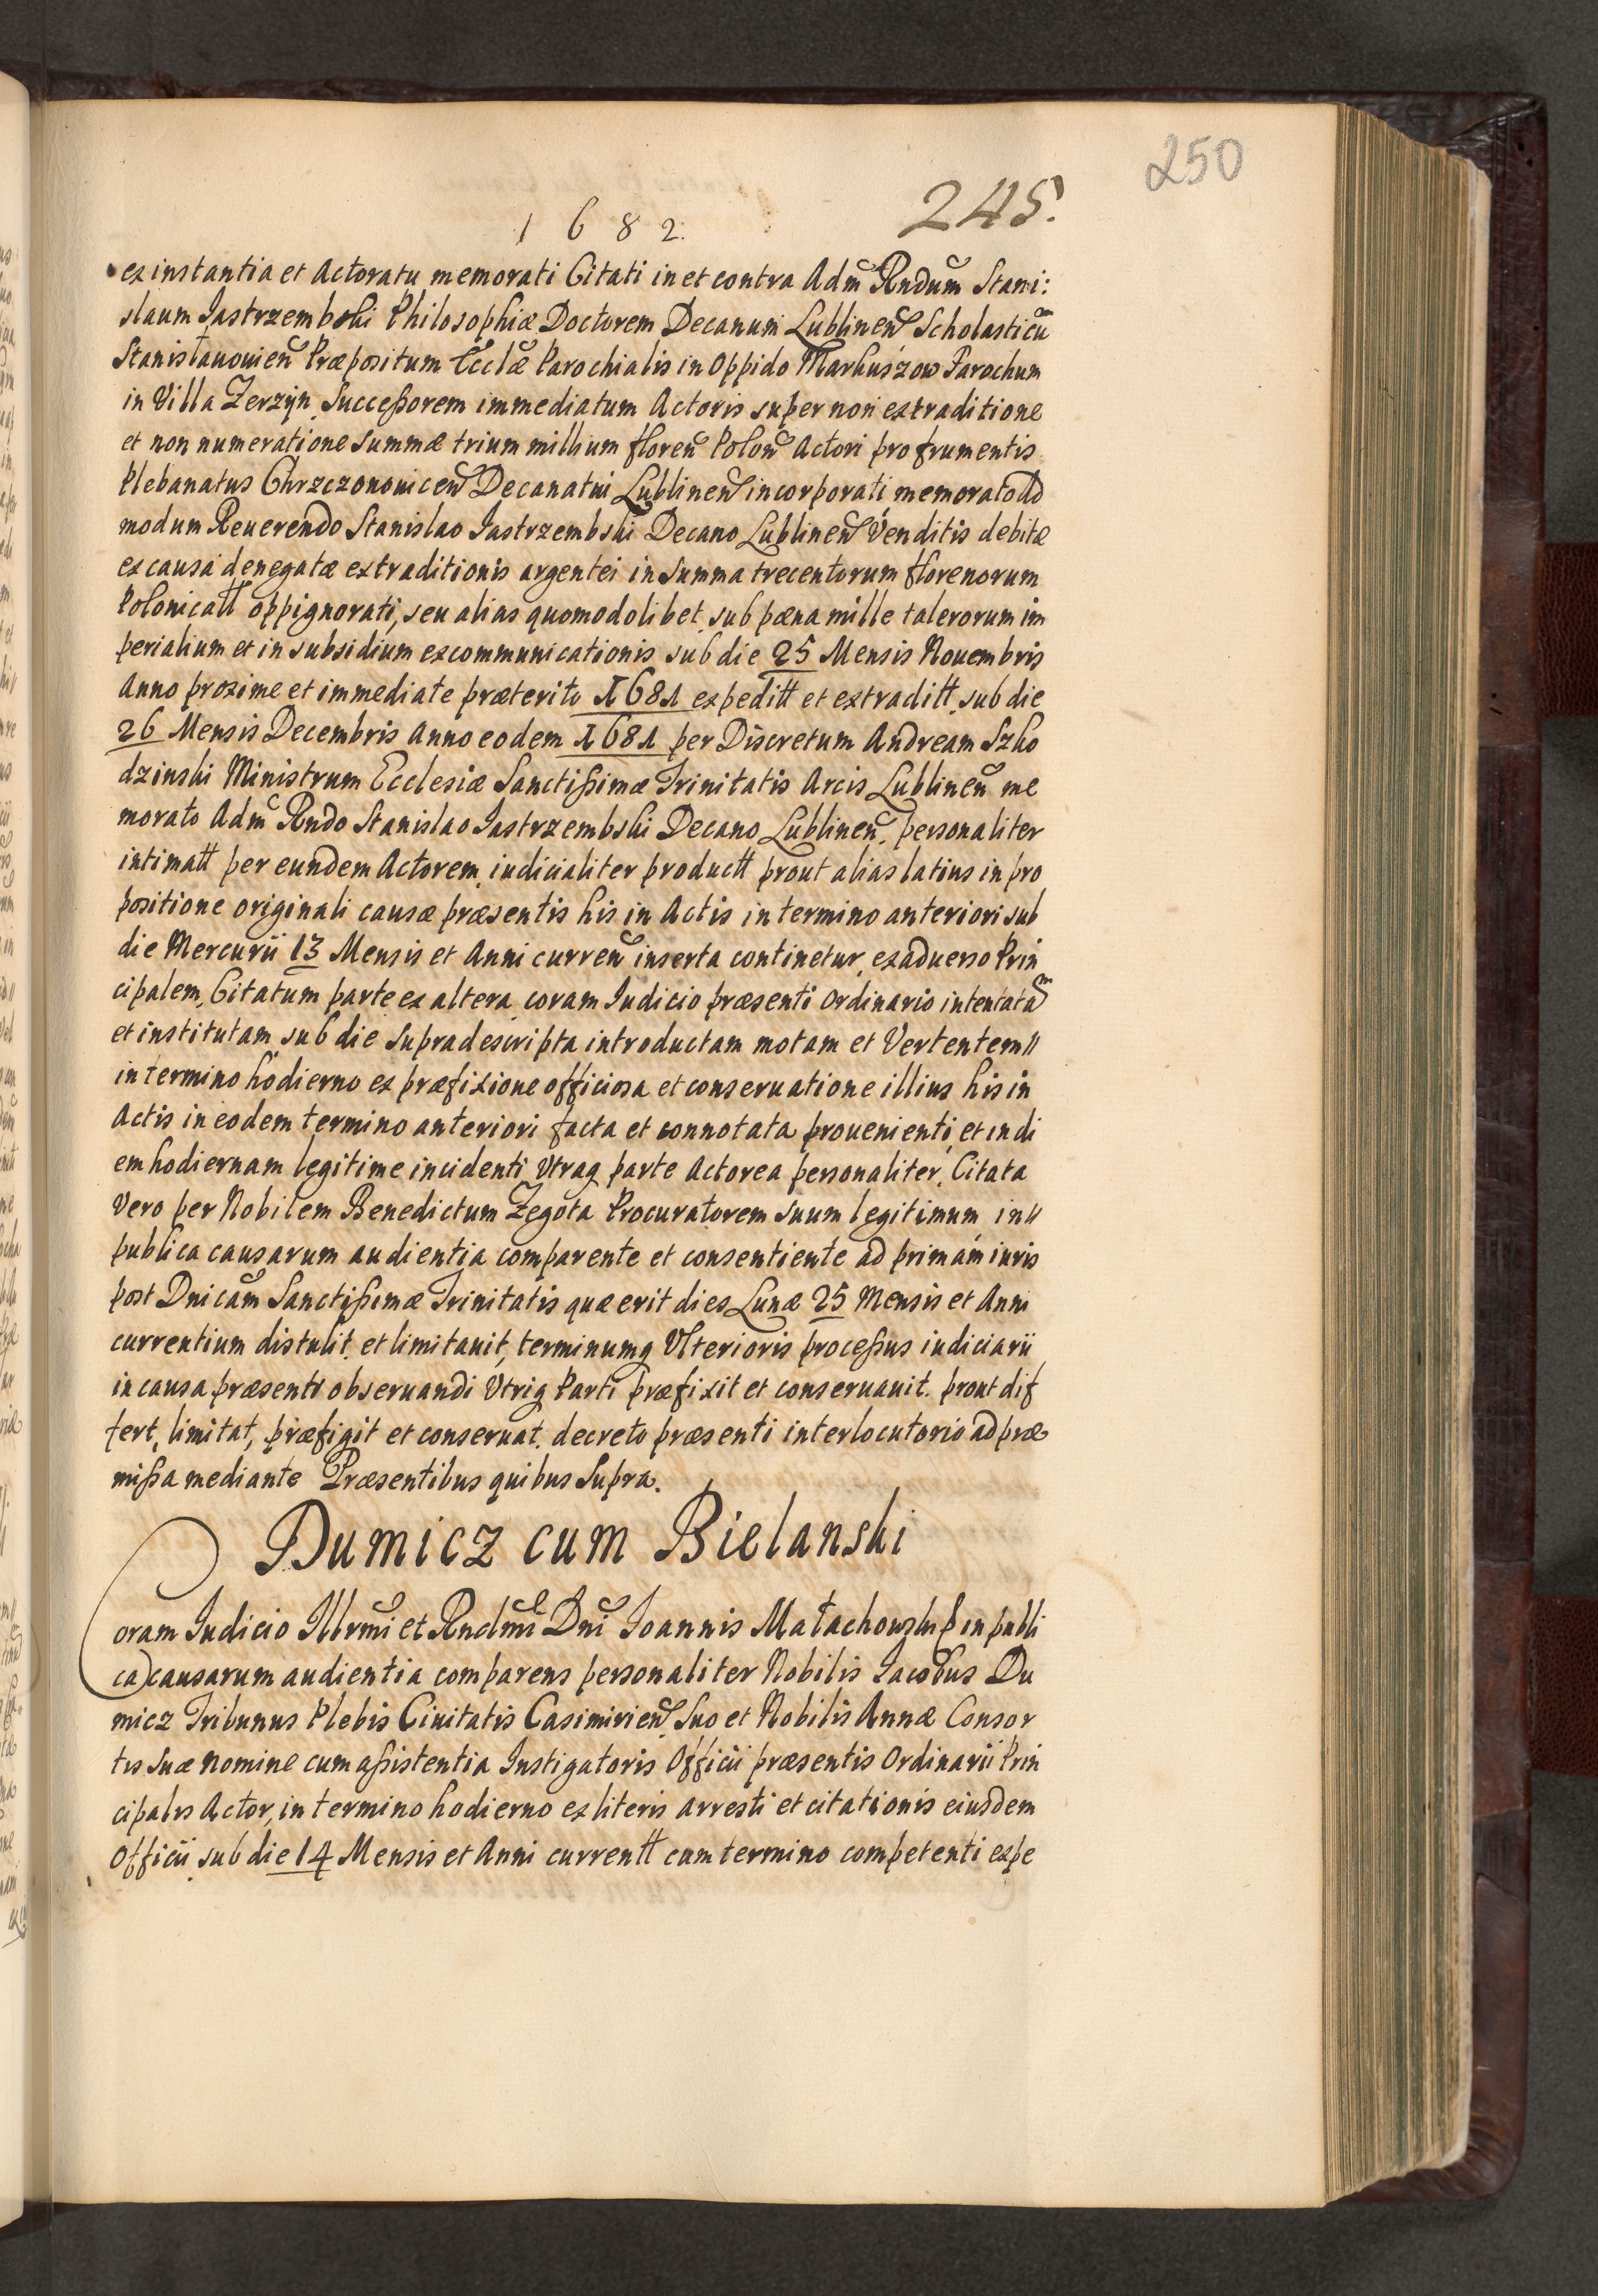 250
245.
1682.
ex instantia et Actoratu memorati Citati in et contra Adm̃ Rndum Stani:
slaum Jastrzembski Philosophiæ Doctorem Decanum Lublineñ Scholasticũ
Stanisławowieñ Præpositum Ecclæ Parochialis in Oppido Markuszow Parochum
in Villa Zerzyn Successorem immediatum Actoris super non extraditione
et non numeratione Summæ trium millium floreñ Poloñ Actori pro frumentis
Plebanatus Chrzczonouiceñ Decanatui Lublineñ incorporati memorato Ad
modum Reuerendo Stanislao Jastrzembski Decano Lublineñ Venditis debitæ
ex causa denegatæ extraditionis argentei in Summa trecentorum florenorum
Polonicall oppignorati, seu alias quomodolibet sub pæna mille talerorum im
perialium et in subsidium excommunicationis sub die 25 Mensis Nouembris
Anno proxime et immediate præterito 1681 expeditt et extraditt, sub die
26 Mensis Decembris Anno eodem 1681 per Discretum Andream Szko
dzinski Ministrum Ecclesiæ Sanctissimæ Trinitatis Arcis Lublineñ me
morato Adm̃ Rndo Stanislao Jastrzembski Decano Lublineñ. personaliter
intimatt per eundem Actorem iudicialiter productt prout alias latius in pro
positione originali causæ præsentis his in Actis in termino anteriori sub
die Mercurii 13 Mensis et Anni curreñ inserta continetur, ex aduerso Prin
cipalem Citatum parte ex altera coram Judicio præsenti Ordinario intentatam
et institutam sub die supradescripta introductam motam et Vertentem //
in termino hodierno ex præfixione officiosa et conseruatione illius his in
Actis in eodem termino anteriori facta et connotata prouenienti, et in di
em hodiernam legitime incidenti Vtraq parte Actorea personaliter, Citata
Vero per Nobilem Benedictum Zegota Procuratorem suum legitimum in //
publica causarum audientia comparente et consentiente ad primam iuris
post Dnicam̃ Sanctissimæ Trinitatis quæ erit dies Lunæ 25 Mensis et Anni
currentium distulit et limitauit, terminumq Vlterioris processus iudiciarii
in causa præsenti obseruandi Vtriq Parti præfixit et conseruauit. prout dif
fert, limitat, præfigit et conseruat. decreto præsenti interlocutorio ad præ
missa mediante Præsentibus quibus Supra.
Dumicz cum Bielanski
Coram Judicio Illrmi et Rndmi Dni Joannis Małachowski p in publi
ca causarum audientia comparens personaliter Nobilis Jacobus Du
micz Tribunus Plebis Ciuitatis Casimirieñ Suo et Nobilis Annæ Consor
tis Suæ Nomine cum assistentia Instigatoris Officii præsentis Ordinarii Prin
cipalis Actor, in termino hodierno ex literis arresti et citationis eiusdem
Officii sub die 14 Mensis et Anni currentt cum termino competenti expe